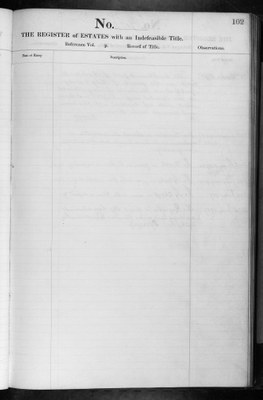 No.
102
THE REGISTER of ESTATES with an Indefeasible Title.
Reference Vol. p. Record of Title.
Observations.
Date of Entry.
Description.